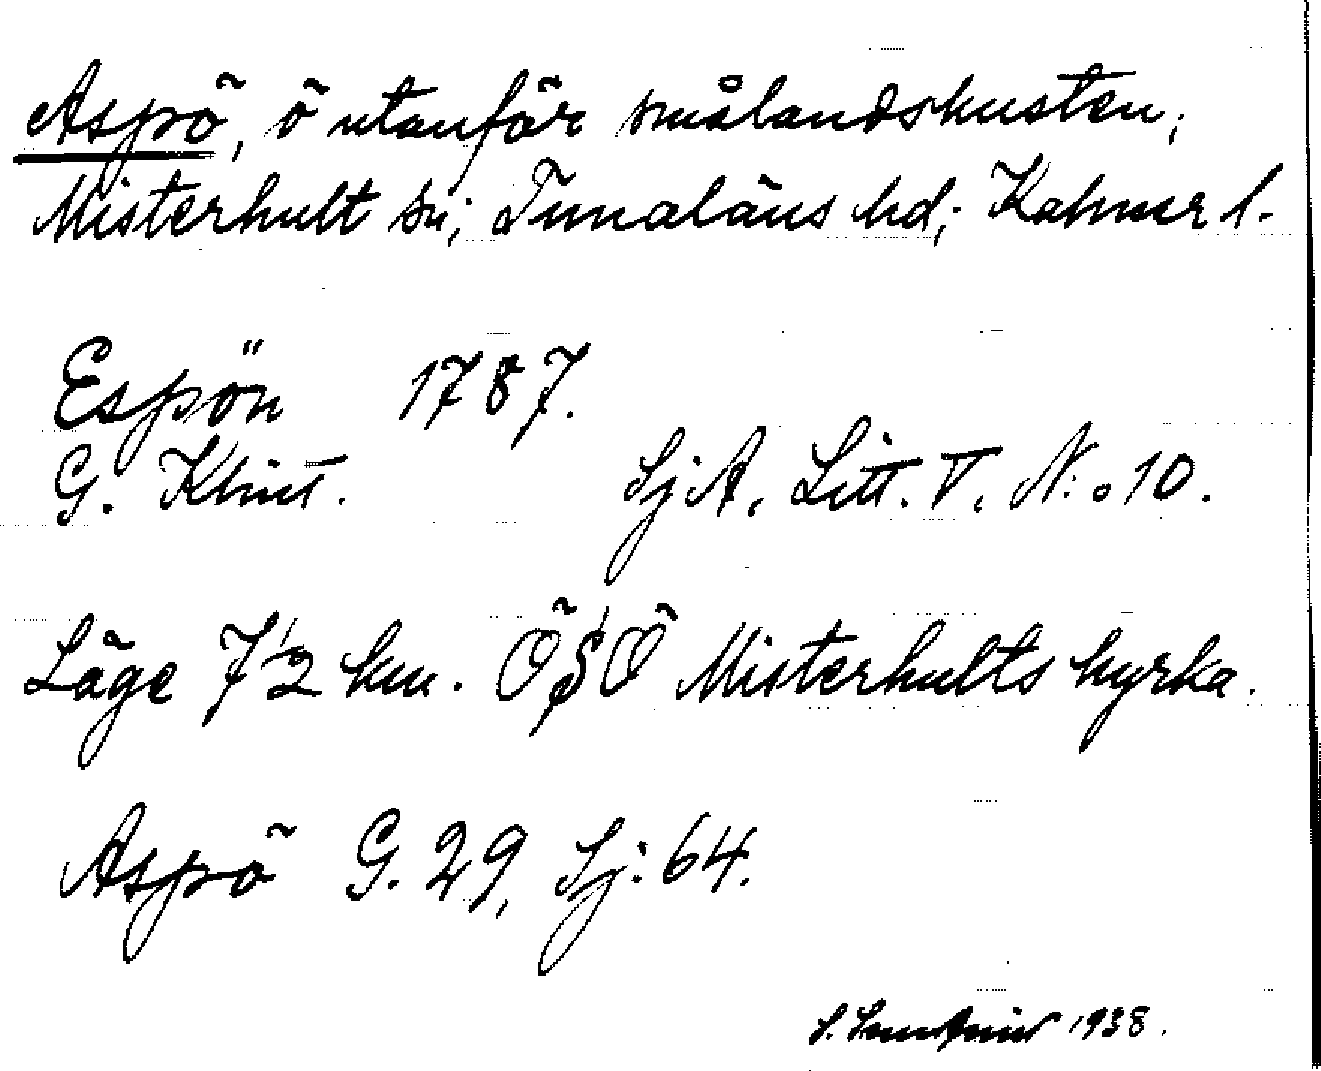 Aspö, ö utanför smålandskusten,
Misterhult sn; Tunaläns hd; Kalmar l.
Espön 1787.
G. Klint. Sj A. Litt. V. N:o 10.
Läge 7 1/2 km. ÖSÖ Misterhults kyrka.
Aspö G. 29, Sj: 64.
S. 1938.